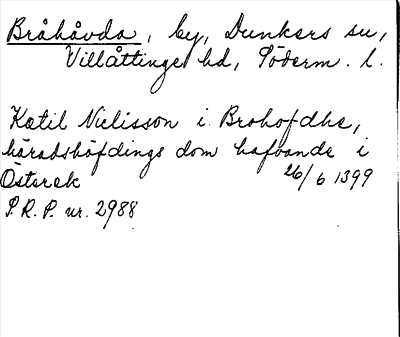 Bråhåvda, by, Dunkers sn,
Villåttinge hd, Söderm. l.
Ketil Nielisson i Brohofdhe,
häradshöfdings dom hafvande i
Österek 26/6 1399
S.R.P. nr. 2988